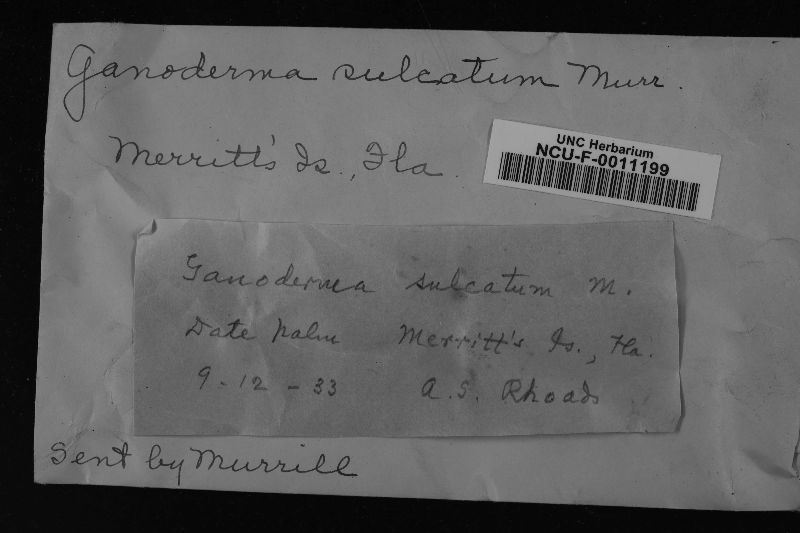 Ganoderma sulcatum Murr.
Merritt's Is., Fla.
UNC Herbarium
NCU-F-0011199
Ganoderma sulcatum M.
Date palm Merritt's Is., Fla.
9-12-33 A.S. Rhoads
Sent by Murrill